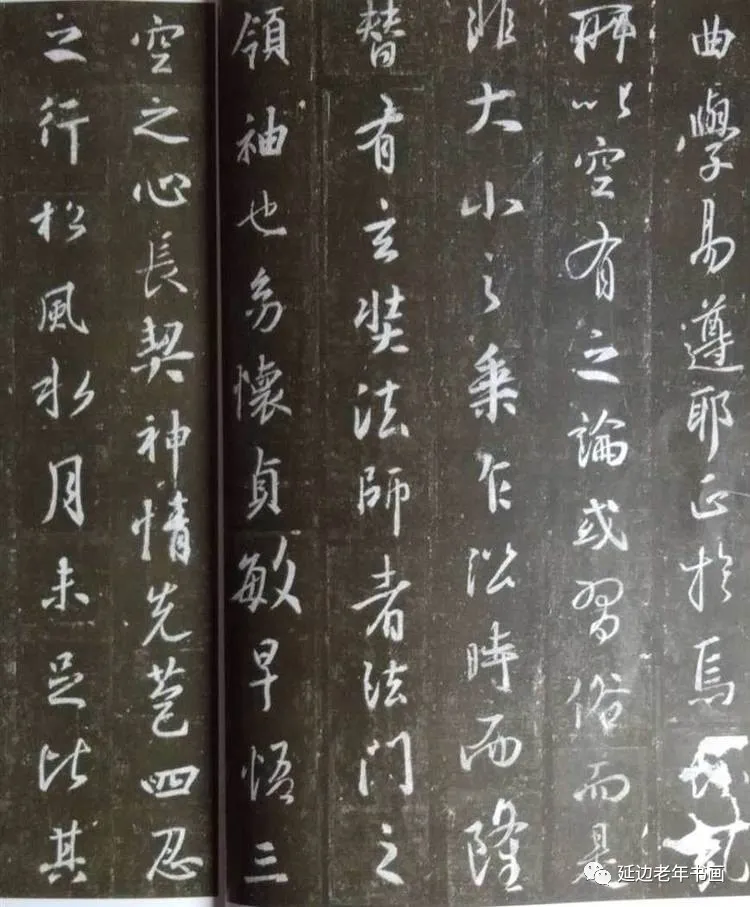 曲學易遵耶正於焉
所以空有之論或習俗而是
非大小之乘乍沿時而隆
替有玄奘法師者法門之
領袖也幼懷貞敏早悟三
空之心長契神情先苞四忍
之行松風水月未足比其
延边老年书画